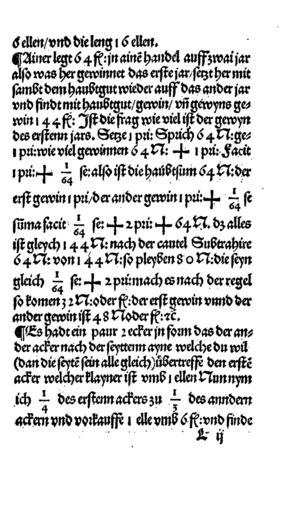 6 ellen/vnd die leng 1 6 ellen.
¶Ainer legt 6 4 fl: in aine͂ handel auff zwai jar
also was her gewinnet das erste jar/setzt her mit
sambt dem haubtgut wieder auff das ander jar
vnd findt mit haubtgut/gewin/ vn͂ gewyns ge-
win 1 4 4 fl: Ist die frag wie viel ist der gewyn
des erstenn jars. Setze 1 pri: Sprich 6 4 N: ge-
1 pri: wie viel gewinnen 6 4 N: + 1 pri: Facit
1 pri: + 1/64 se: also ist die haubtsum 6 4 N: der
erst gewin 1 pri/der ander gewin 1 pri: + 1/64 se
sūma facit 1/64 se: + 2 pri: + 6 4 N. dz alles
ist gleych 1 4 4 N: nach der cautel Subtrahire
6 4 N: von 1 4 4 N: so pleyben 8 0 N: die seyn
gleich 1/64 se: + 2 pri: mach es nach der regel
so komen 3 2 N: oder fl: der erst gewin vnnd der
ander gewin ist 4 8 N oder fl: ꝛc̄.
¶Es hadt ein paur 2 ecker in form das der an-
der acker nach der seyttenn ayne welche du wil
(dan die seyte͂ sein alle gleich) übertreffe͂ den erste͂
acker welcher klayner ist vmb 1 ellen Nun nym
ich 1/4 des erstenn ackers zu 1/3 des anndern
ackern vnd vorkauffe͂ 1 elle vmb 6 fl: vnd finde
L ij